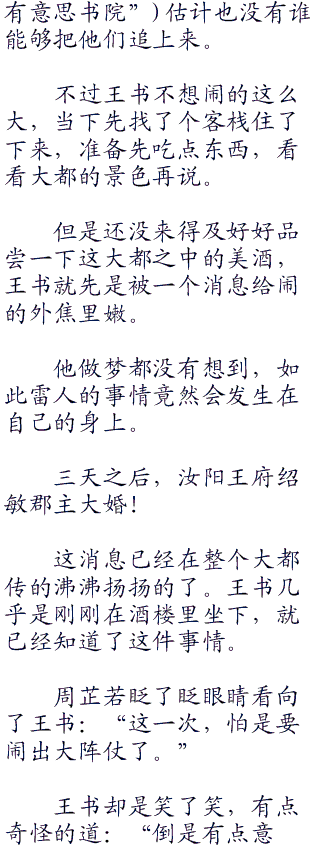 有意思书院”)估计也没有谁
能够把他们追上来。
不过王书不想闹的这么
大，当下先找了个客栈住了
下来，准备先吃点东西，看
看大都的景色再说。
但是还没来得及好好品
尝一下这大都之中的美酒，
王书就先是被一个消息给闹
的外焦里嫩。
他做梦都没有想到，如
此雷人的事情竟然会发生在
自己的身上。
三天之后，汝阳王府绍
敏郡主大婚！
这消息已经在整个大都
传的沸沸扬扬的了。王书几
乎是刚刚在酒楼里坐下，就
已经知道了这件事情。
周芷若眨了眨眼睛看向
了王书：“这一次，怕是要
闹出大阵仗了。”
王书却是笑了笑，有点
奇怪的道：“倒是有点意